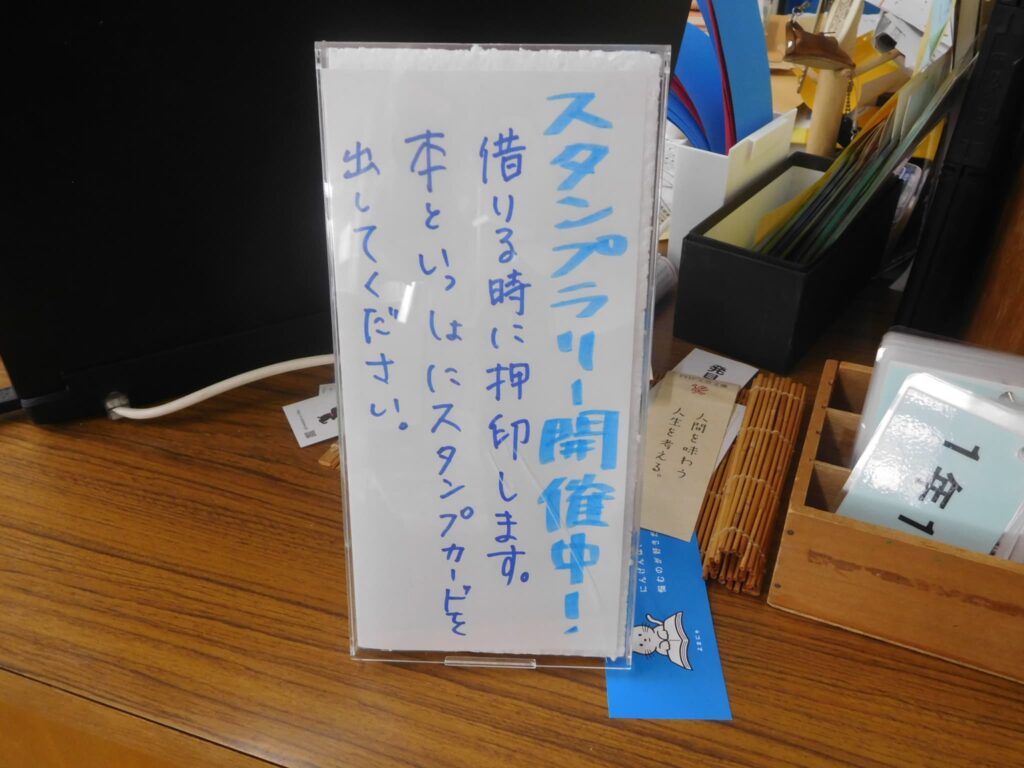 スタンプラリー開催中!
借りる時に押印します。
本といっしょにスタンプカードを
出してください。
人間を味わう
人生を考える。
1年1